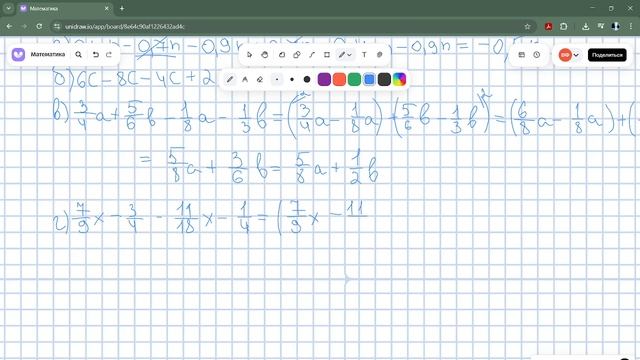 Математика
unidraw.io/app/board/8e64c90af1226432ad4c
Математика
Поделиться
- 0,9n = -0,5
б) 6c - 8c - 4c + 2
в) 3/4 a + 5/6 b - 1/8 a - 1/3 b = (3/4 a - 1/8 a) + (5/6 b - 1/3 b) = (6/8 a - 1/8 a) + (
= 5/8 a + 3/6 b = 5/8 a + 1/2 b
г) 7/9 x - 3/4 - 11/18 x - 1/4 = (7/9 x - 11